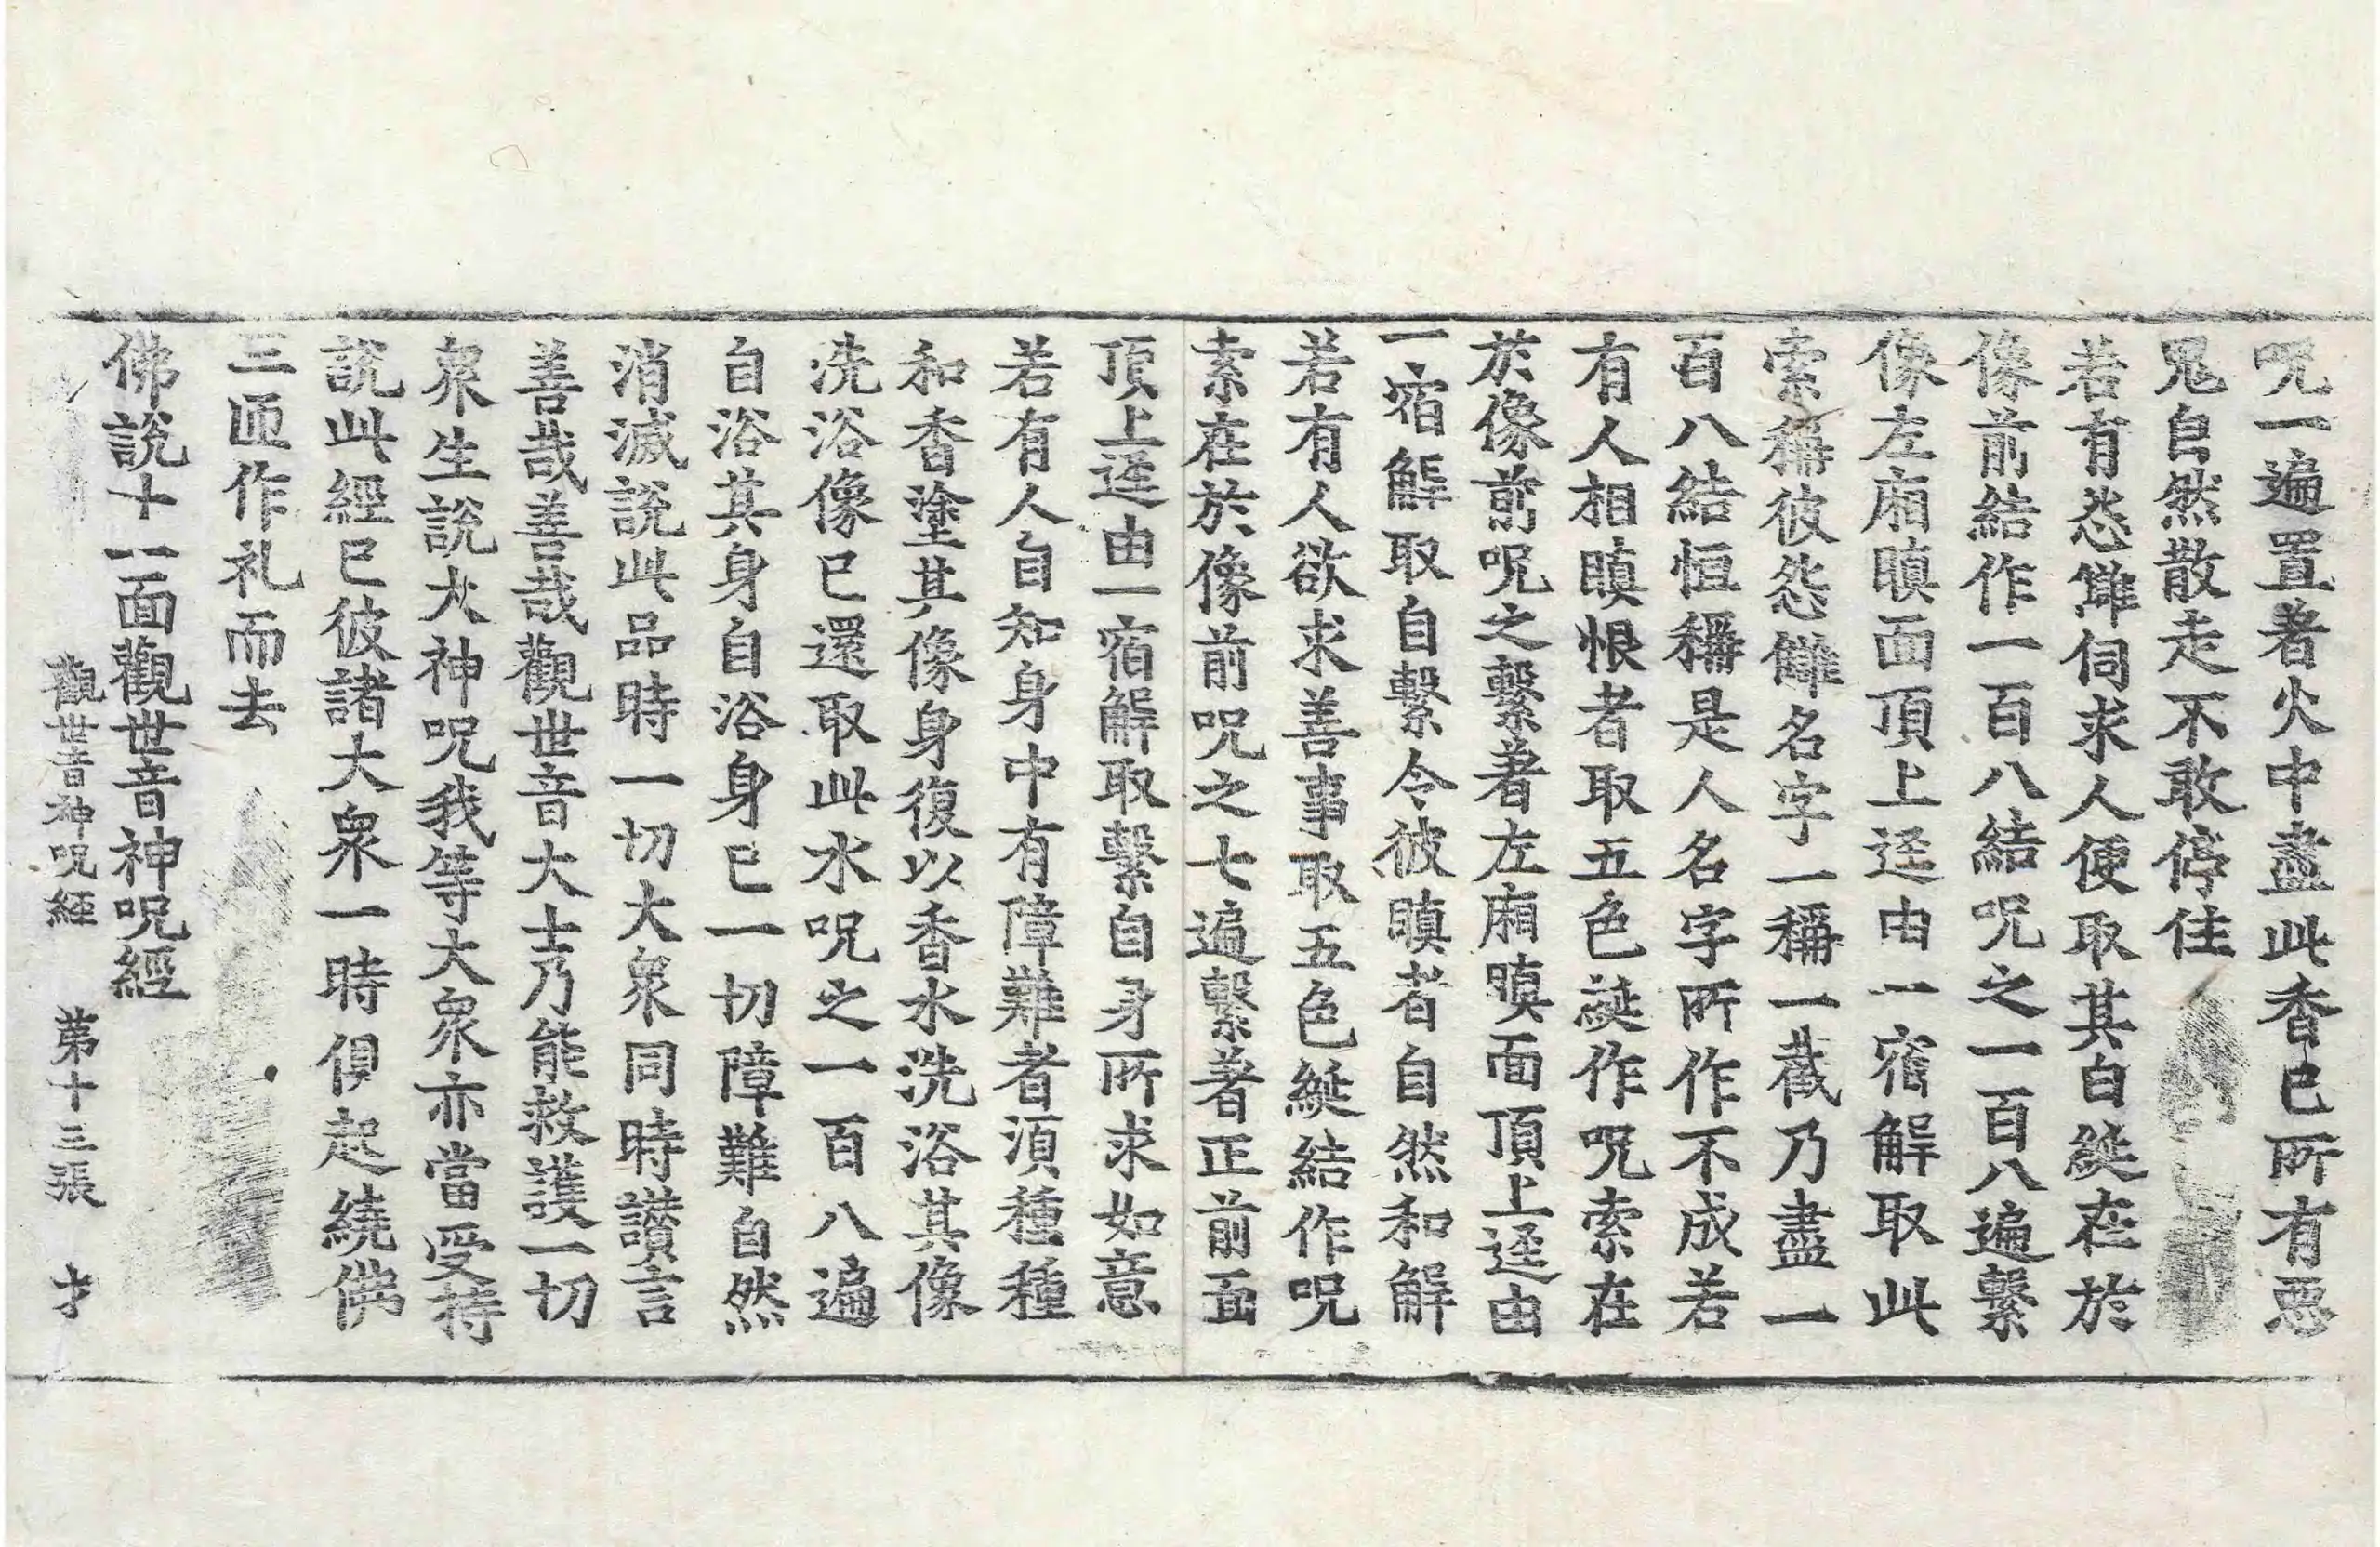 呪一遍置著火中盡此香已所有惡
鬼自然散走不敢停住
若有怨讎伺求人便取其白綖在於
像前結作一百八結呪之一百八遍繫
像左廂瞋面頂上逕由一宿解取此
索稱彼怨讎名字一稱一截乃盡一
百八結恒稱是人名字所作不成若
有人相瞋恨者取五色綖作呪索在
於像前呪之繫著左廂瞋面頂上逕由
一宿解取自繫令彼瞋者自然和解
若有人欲求善事取五色綖結作呪
索在於像前呪之七遍繫著正前面
頂上逕由一宿解取繫自身所求如意
若有人自知身中有障難者須種種
和香塗其像身復以香水洗浴其像
洗浴像已還取此水呪之一百八遍
自浴其身自浴身已一切障難自然
消滅說此品時一切大衆同時讃言
善哉善哉觀世音大士乃能救護一切
衆生說大神呪我等大衆亦當受持
說此經已彼諸大衆一時俱起繞佛
三匝作礼而去
佛說十一面觀世音神呪經
觀世音神呪經 第十三張 才